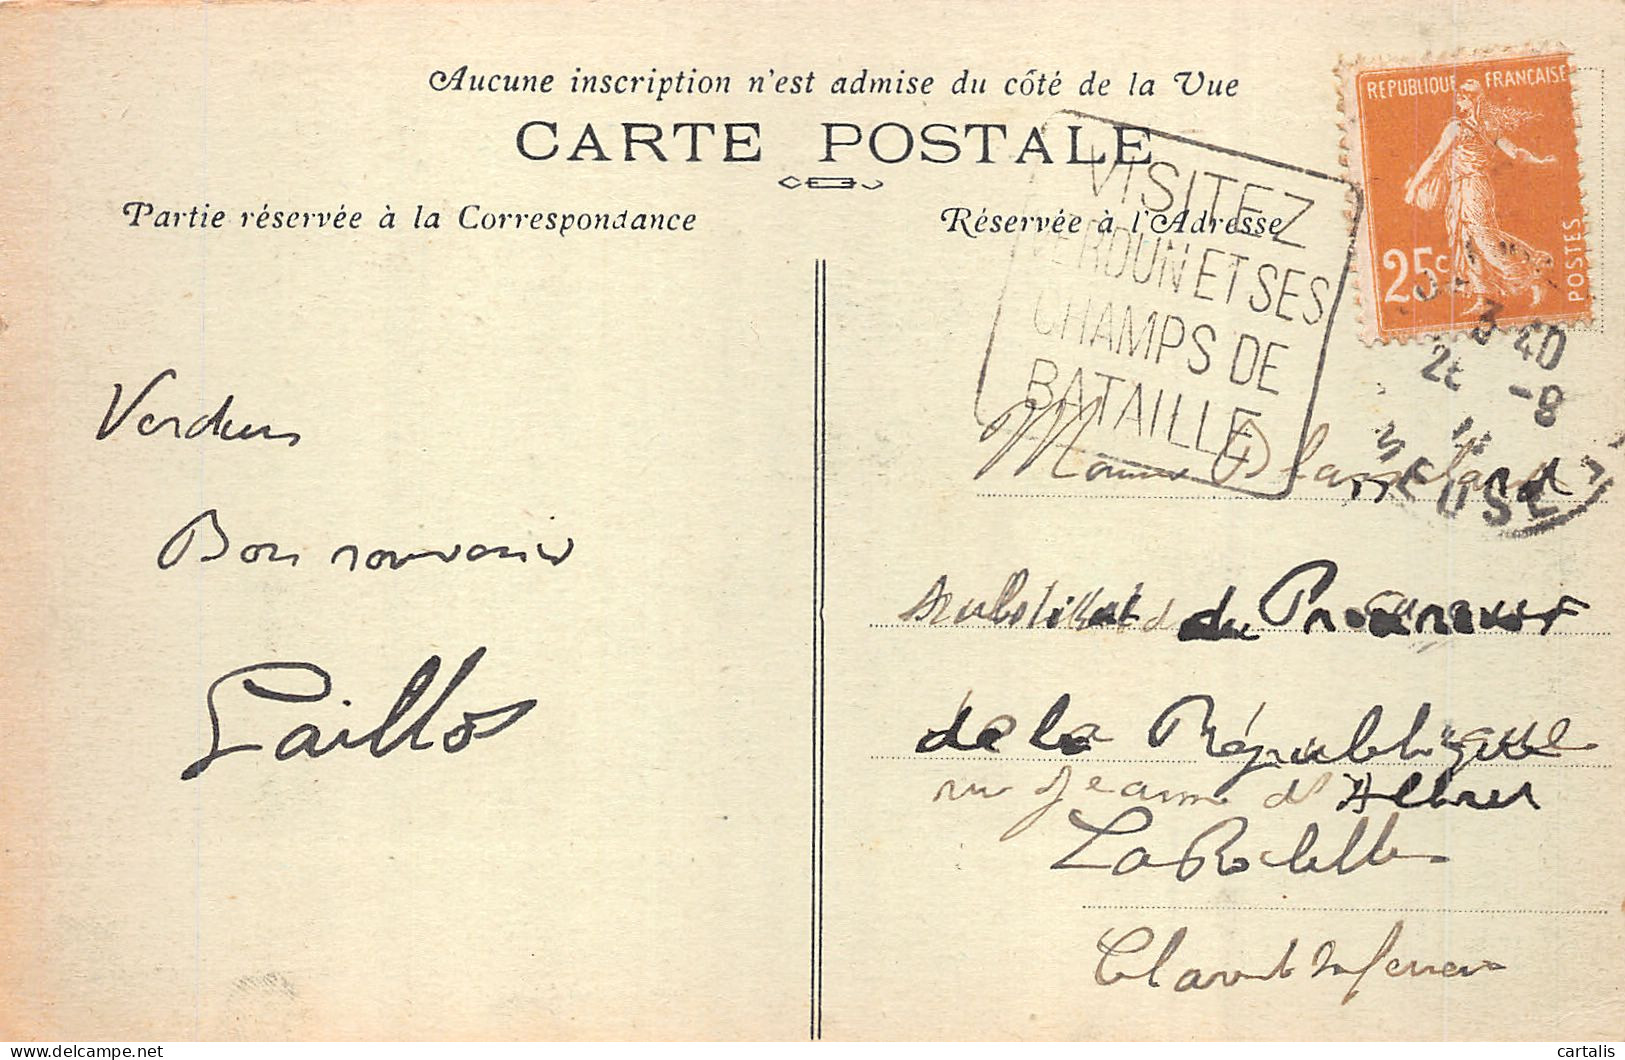 Aucune inscription n'est admise du côté de la Vue
CARTE POSTALE
Partie réservée à la Correspondance
Réservée à l'Adresse
REPUBLIQUE FRANÇAISE
25c
POSTES
VISITEZ
VERDUN ET SES
CHAMPS DE
BATAILLE
3 40
-8
MEUSE
Verdun
Bon souvenir
substitut du Procureur
de la République
rue Jeanne d'Albret
La Rochelle
Charente Inférieure
delcampe.net
cartalis